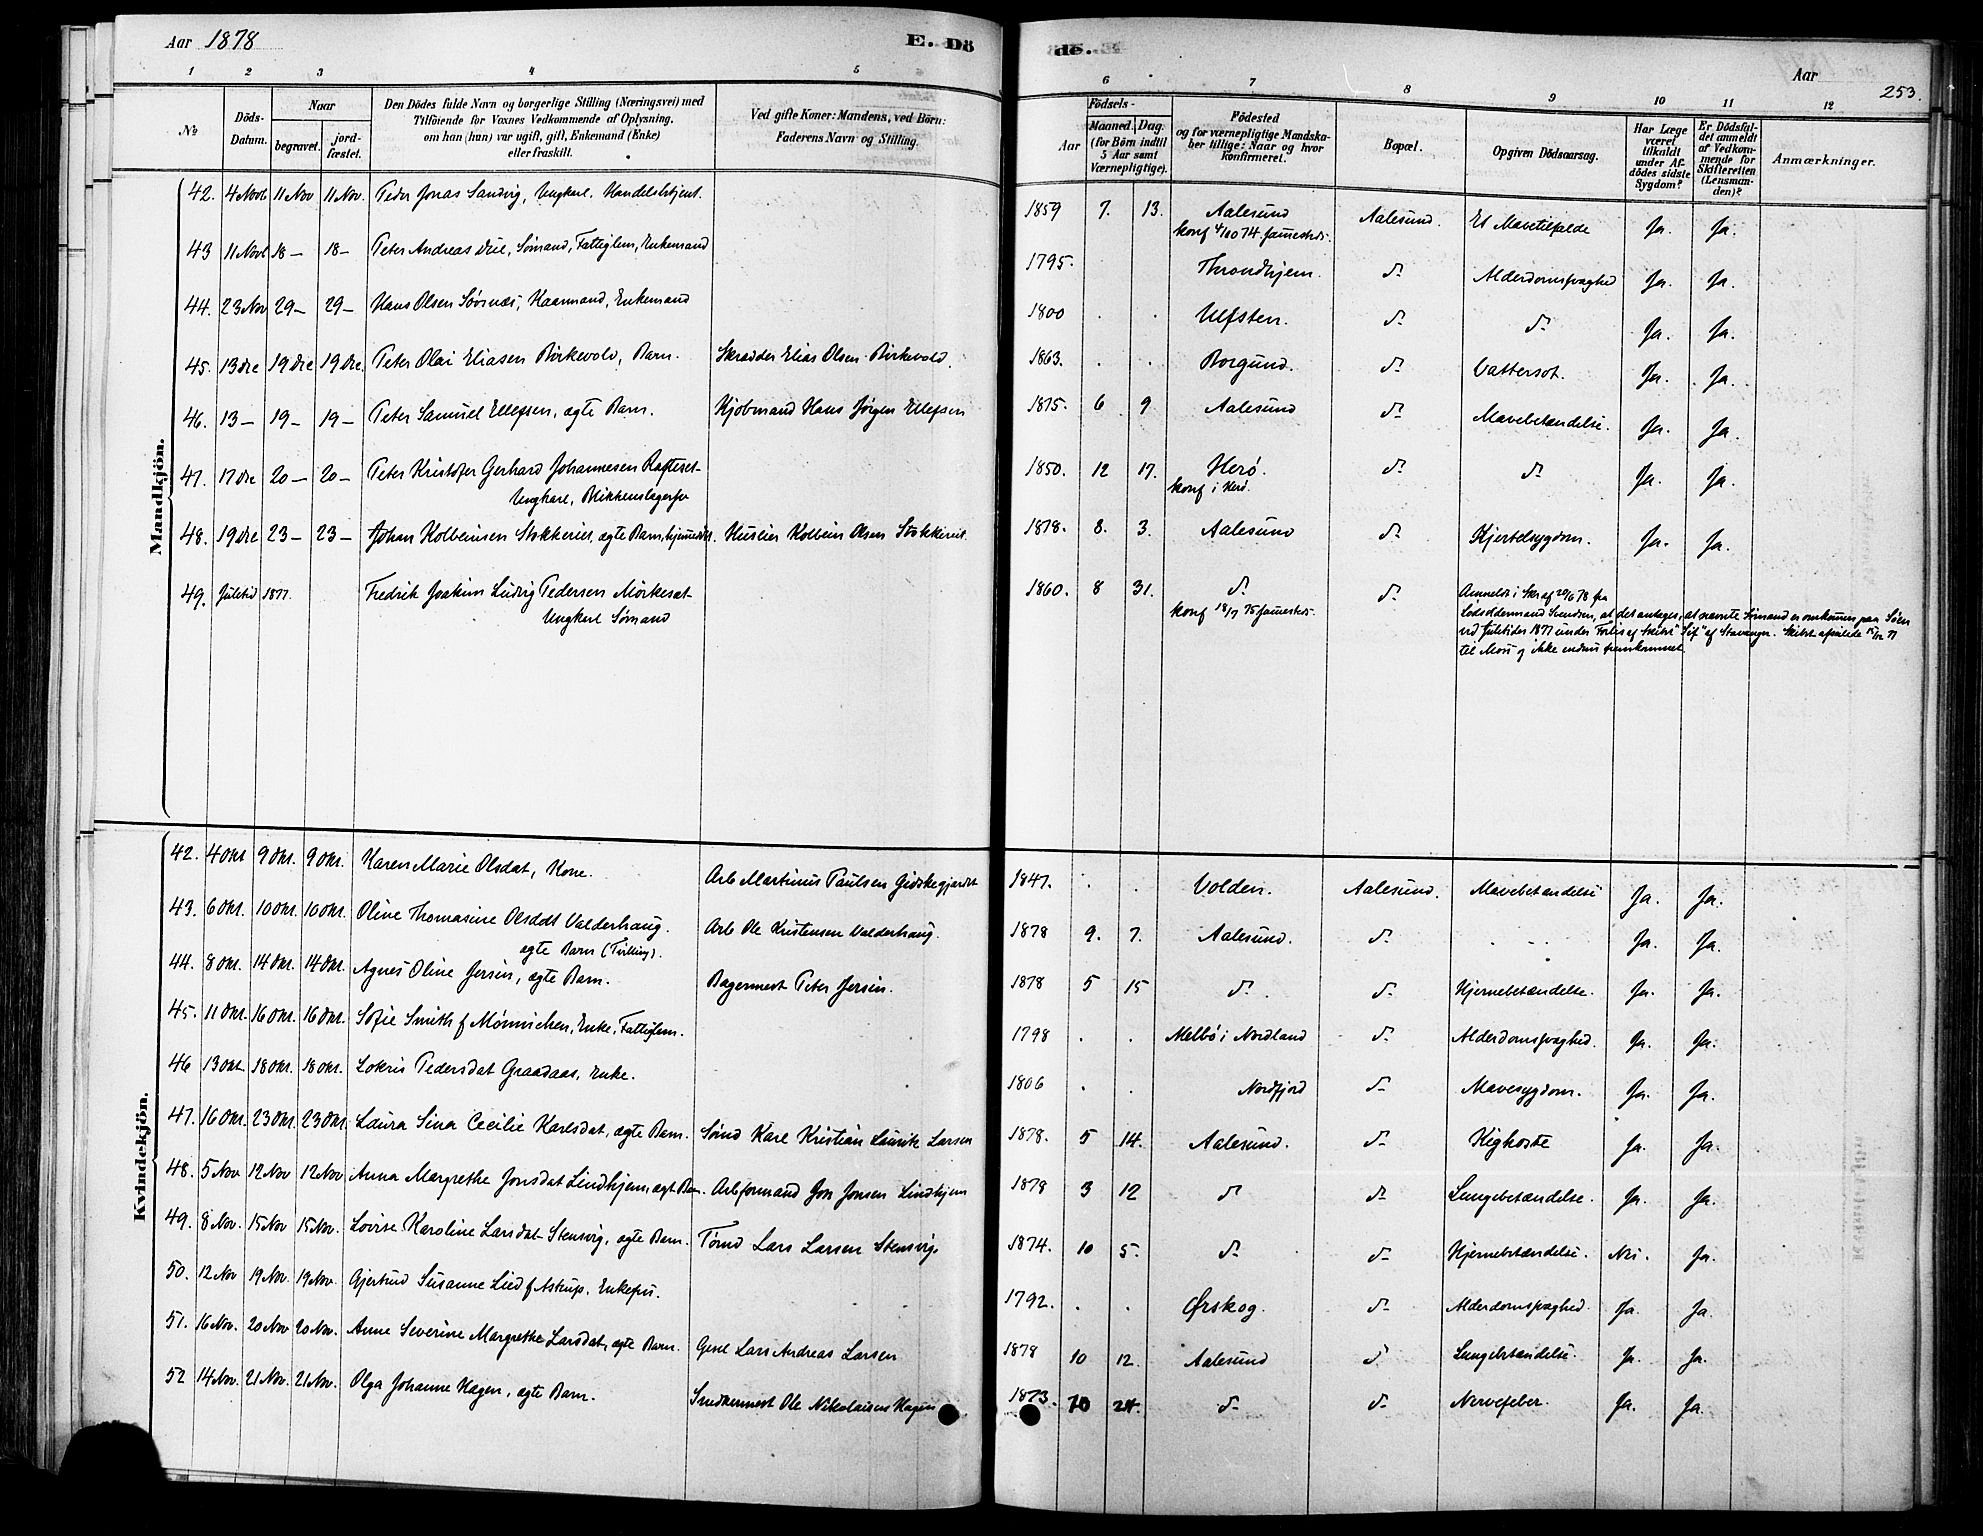 Aar 1878
E. Dö
de.
Aar
253.
1 2 3 4 5 6 7 8 9 10 11 12
No
Döds-Datum.
Naar
begravet.
jord-fæstet.
Den Dödes fulde Navn og borgerlige Stilling (Næringsvei) med
Tilföiende for Voxnes Vedkommende af Oplysning,
om han (hun) var ugift, gift, Enkemand (Enke)
eller fraskilt.
Ved gifte Koner: Mandens, ved Börn:
Faderens Navn og Stilling.
Födsels-
Aar
Maaned. Dag.
(for Börn indtil
5 Aar samt
Værnepligtige).
Födested
og for værnepligtige Mandska-
ber tillige: Naar og hvor
konfirmeret.
Bopæl.
Opgiven Dödsaarsag.
Har Læge
været
tilkaldt
under Af-
dödes sidste
Sygdom?
Er Dödsfal-
det anmeldt
af Vedkom-
mende for
Skifteretten
(Lensman-
den)?
Anmærkninger.
Mandkjön.
42. 4 Novb 11 Nov 11 Nov. Peder Jonas Sandvig, Ungkarl, Handelsbetjent. 1859 7. 13. Aalesund Aalesund. Et Mavetilfælde Ja. Ja.
konf 4/10 74
43 11 Novb 18 – 18 – Peter Andreas Sømand, Fattiglem, Enkemand 1795. Throndhjem. do Alderdomssvaghed Ja. Ja.
44. 23 Nov 29 – 29 – Hans Olsen Sörsnæs, Enkemand 1800 . . Ulfsten. do do Ja. Ja.
45. 13 Dre 19 Dre 19 Dre. Peter Olai Eliasen Birkevold, Barn. Skrædder Elias Olsen Birkevold. 1863. . . Borgund. do Vattersot. Ja. Ja.
46. 13 – 19 – 19 – Peter Samuel Ellefsen, ægte Barn. Kjöbmand Hans Jörgen Ellefsen 1875. 6 9. Aalesund do Mavebetændelse. Ja. Ja.
47. 17 Dre 20 – 20 – Peter Kristofer Gerhard Johannesen Rafteset 1850. 12 17. Herø. do do Ja. Ja.
Ungkarl, Blikkenslagersv
konf i Herø.
48. 19 Dre 23 – 23 – Johan Kolbeinsen Stokkereit, ægte Barn, hjemmedöbt. Huseier Kolbein Olsen Stokkereit. 1878. 8. 3. Aalesund do Kjertelsygdom. Ja. Ja.
49. Juletid 1877. Fredrik Joakim Ludvig Pedersen Mörkeset 1860. 8 31. do do Anmeldt i Skr af 20/6 78 fra
Ungkarl Sømand
konf 18/7 75
Lodsoldermand Svendsen, at det antages, at nævnte Sømand er omkommen paa Søen
ved Juletider 1877 under Forlis af Skibet "Sif" af Stavanger. Skibet afseilede 15/12 77
til Moss og ikke endnu fremkommet.
Kvindekjön.
42. 4 Okt 9 Okt. 9 Okt. Karen Marie Olsdat, Kone. Arb Martinus Paulsen Gidskegjerdet 1847. . . Volden. Aalesund. Mavebetændelse Ja. Ja.
43. 6 Okt. 10 Okt. 10 Okt. Oline Thomasine Olsdat Valderhaug. Arb Ole Kristensen Valderhaug. 1878 9. 7. Aalesund. do Ja. Ja.
ægte Barn (Tvilling).
44. 8 Okt. 14 Okt. 14 Okt. Agnes Oline Jersin, ægte Barn. Bagermest Peter Jersin. 1878 5 15 do do Hjernebetændelse. Ja. Ja.
45. 11 Okt. 16 Okt. 16 Okt. Sofie Smith f Mönnichen, Enke, Fattiglem. 1798 . . Melbö i Nordland do Alderdomssvaghed. Ja. Ja.
46 13 Okt 18 Okt. 18 Okt. Lokris Pedersdat Graadaas, Enke. 1806 . . Nordfjord do Mavesygdom. Ja. Ja.
47. 16 Okt. 23 Okt. 23 Okt. Laura Sina Cecilie Karlsdat, ægte Barn. Sømd Karl Kristian Larsen 1878. 5 14. Aalesund. do Kighoste Ja. Ja.
48. 5 Nov 12 Nov 12 Nov Anna Margrethe Jonsdat Lindhjem, ægt Barn. Arbformand Jon Jonsen Lindhjem 1878 3 12 do do Lungebetændelse. Ja. Ja.
49. 8 Nov. 15 Nov 15 Nov. Lovise Karoline Larsdat Stensvig, ægte Barn. Tömd Lars Larsen Stensvig. 1874. 10 5. do do Hjernebetændelse. Nei. Ja.
50. 12 Nov 19 Nov. 19 Nov. Gjertrud Susanne Lied f Astrup, Enkefru. 1792. . . Ørskog. do Alderdomssvaghed. Ja. Ja.
51. 16 Nov. 20 Nov 20 Nov. Anne Severine Margrethe Larsdat, ægte Barn. Gesel Lars Andreas Larsen 1878 10 12. Aalesund do Lungebetændelse. Ja. Ja.
52 14 Nov. 21 Nov. 21 Nov. Olga Johanne Hagen, ægte Barn. Snedkermest Ole Nikolaisen Hagen 1873. 10 24. do do Nervefeber. Ja. Ja.